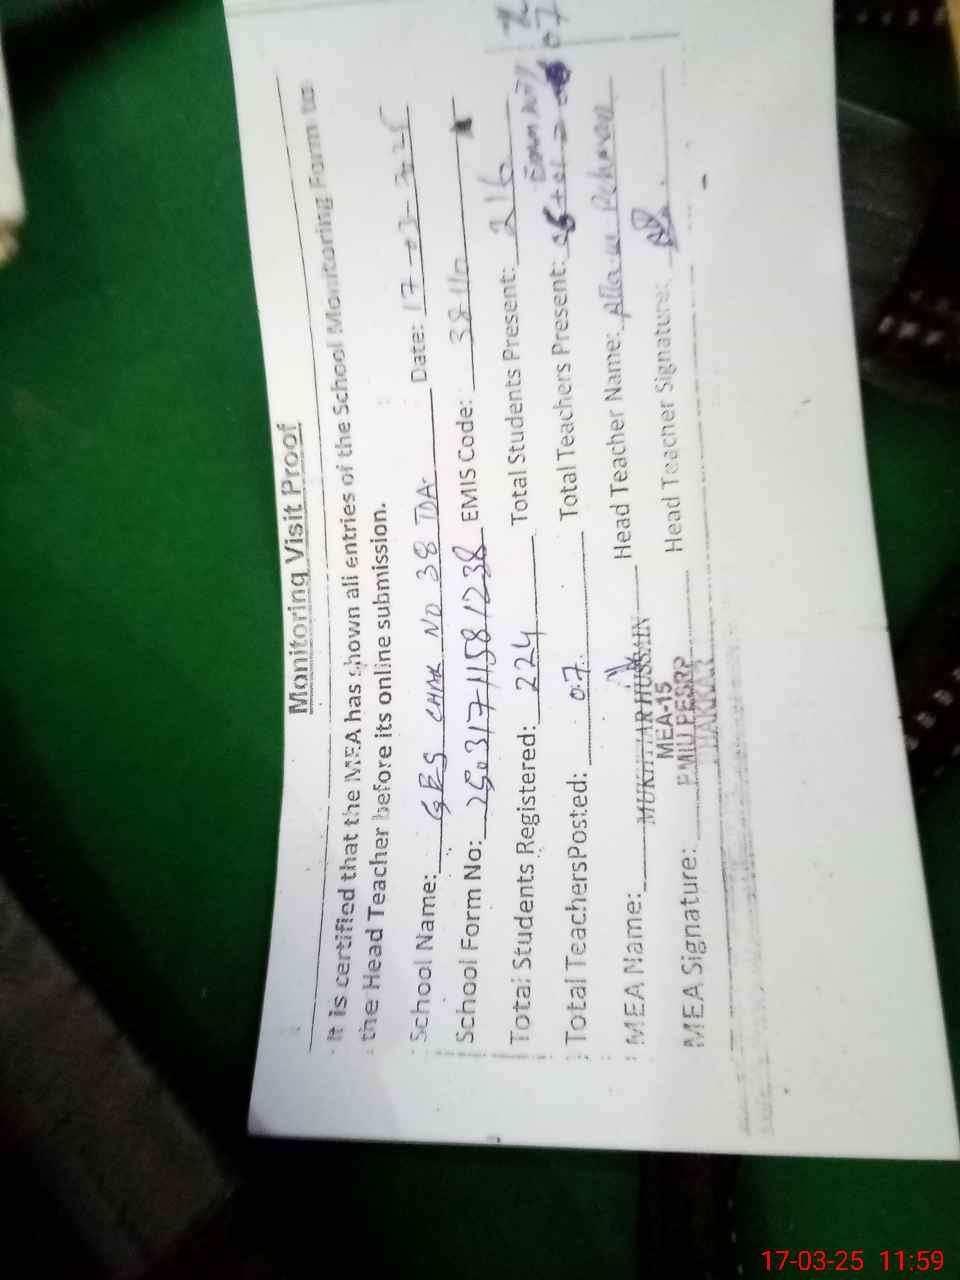 Monitoring Visit Proof
It is certified that the MEA has shown all entries of the School Monitoring Form to
the Head Teacher before its online submission.
School Name: GES CHAK NO 38 TDA Date: 17-03-2025
School Form No: 25031711581238 EMIS Code: 38110
Total Students Registered: 224 Total Students Present: 216
Total TeachersPosted: 07 Total Teachers Present: 07
MEA Name: MUKHTIAR HUSSAIN Head Teacher Name: Rehman
MEA-15
PMIU PESRP
MEA Signature: Head Teacher Signature:
17-03-25 11:59